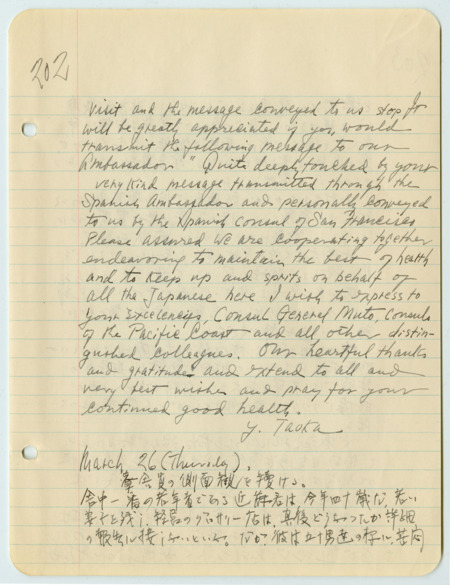 202
visit and the message conveyed to us stop It
will be greatly appreciated if you would
transmit the following message to our
Ambassador " Quite deeply touched by your
very kind message transmitted through the
Spanish Ambassador and personally conveyed
to us by the Spanish Consul of San Francisco
Please assured we are cooperating together
endeavoring to maintain the best of health
and to keep up and spirits on behalf of
all the Japanese here I wish to express to
your Excelencies, Consul General Muto, Consuls
of the Pacific Coast and all other distin-
guished colleagues. Our heartful thanks
and gratitudes and extend to all and
very best wishes and pray for your
continued good health.
Y. Taoka
March 26 (Thursday).
舎員の側面観を続ける。
舎中一番の若年者である近 君は今年四十歳だ、若い
妻子を残し、 のグロサリー店は、其後どうなったか詳細
の報告に接しないといふ。だが、彼は